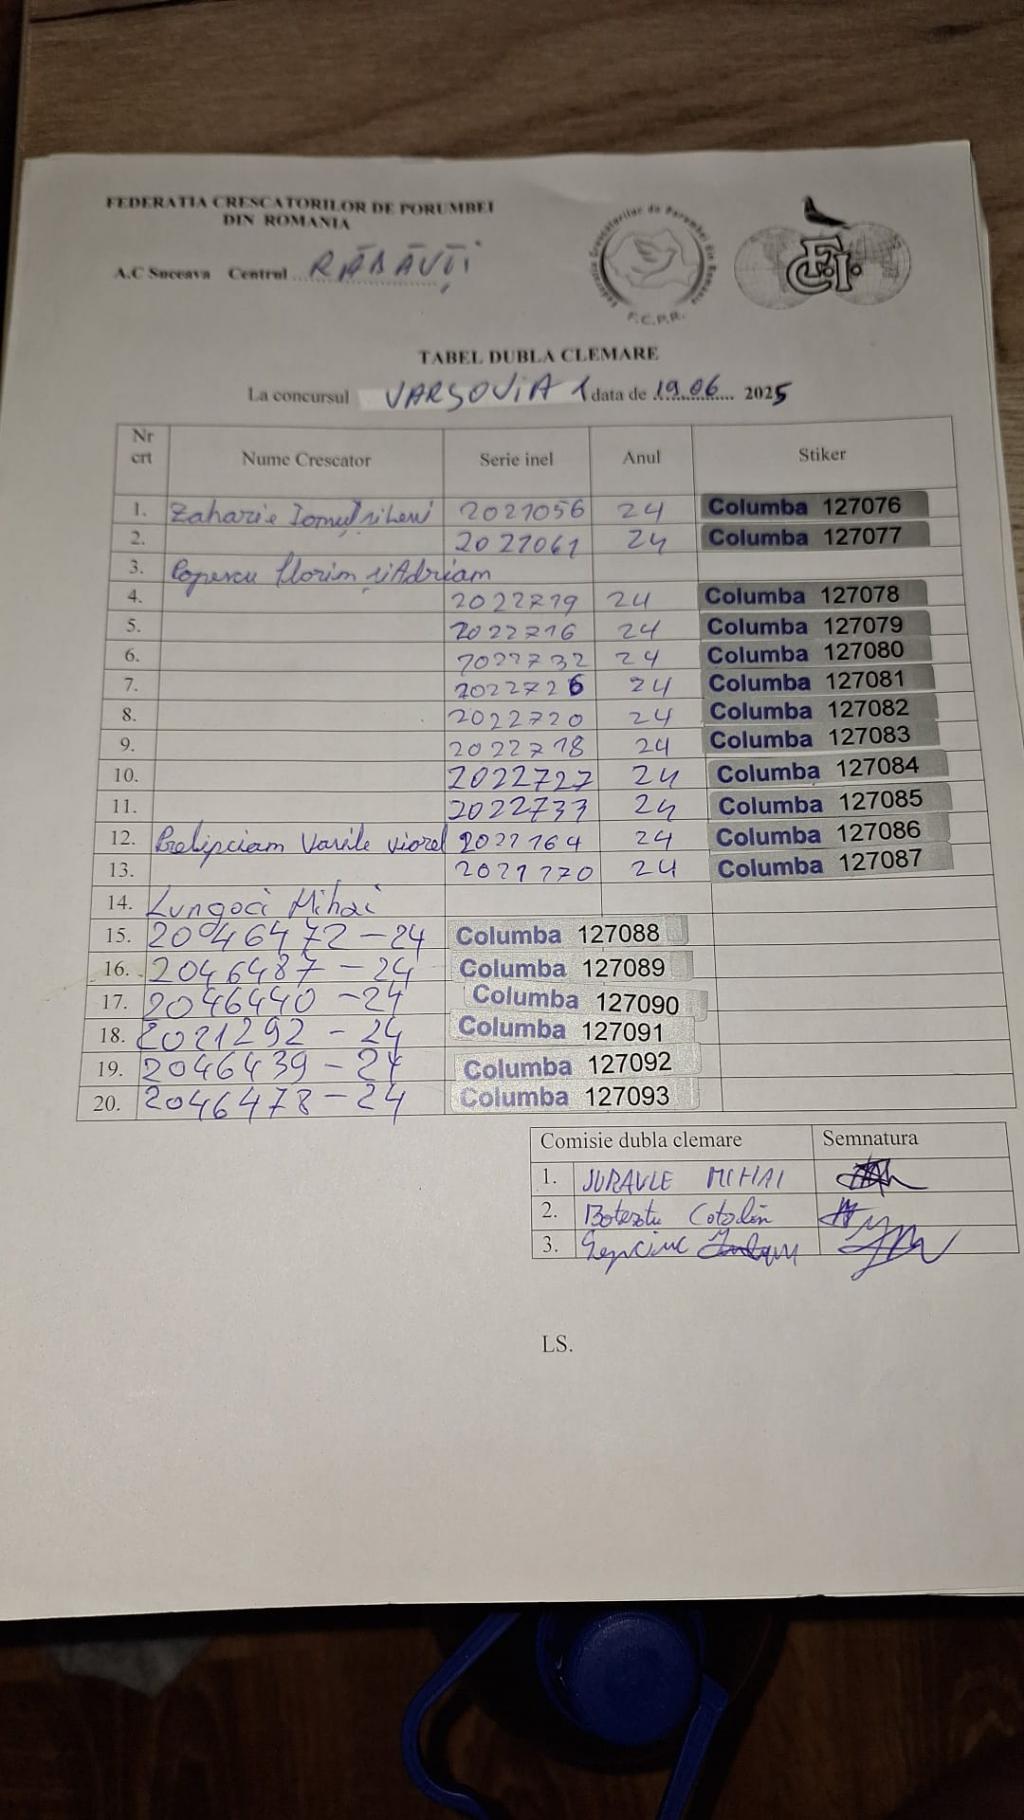 FEDERATIA CRESCATORILOR DE PORUMBEI
DIN ROMANIA
A.C Suceava Centrul RĂDĂUȚI
Federatia Crescatorilor de Porumbei din Romania
F.C.P.R.
FCI
TABEL DUBLA CLEMARE
La concursul VARȘOVIA 1 data de 19.06 2025
Nr crt Nume Crescator Serie inel Anul Stiker
1. Zaharie Ionuț 2021056 24 Columba 127076
2. 2021061 24 Columba 127077
3. Popescu Florin și Adrian
4. 2022719 24 Columba 127078
5. 2022716 24 Columba 127079
6. 2022732 24 Columba 127080
7. 2022726 24 Columba 127081
8. 2022720 24 Columba 127082
9. 2022718 24 Columba 127083
10. 2022727 24 Columba 127084
11. 2022733 24 Columba 127085
12. Prelipcian Vasile Viorel 2021764 24 Columba 127086
13. 2021770 24 Columba 127087
14. Lungoci Mihai
15. 2046472-24 Columba 127088
16. 2046487-24 Columba 127089
17. 2046440-24 Columba 127090
18. 2021292-24 Columba 127091
19. 2046439-24 Columba 127092
20. 2046478-24 Columba 127093
Comisie dubla clemare Semnatura
1. JURAVLE MIHAI
2. Botezatu Catalin
3.
LS.